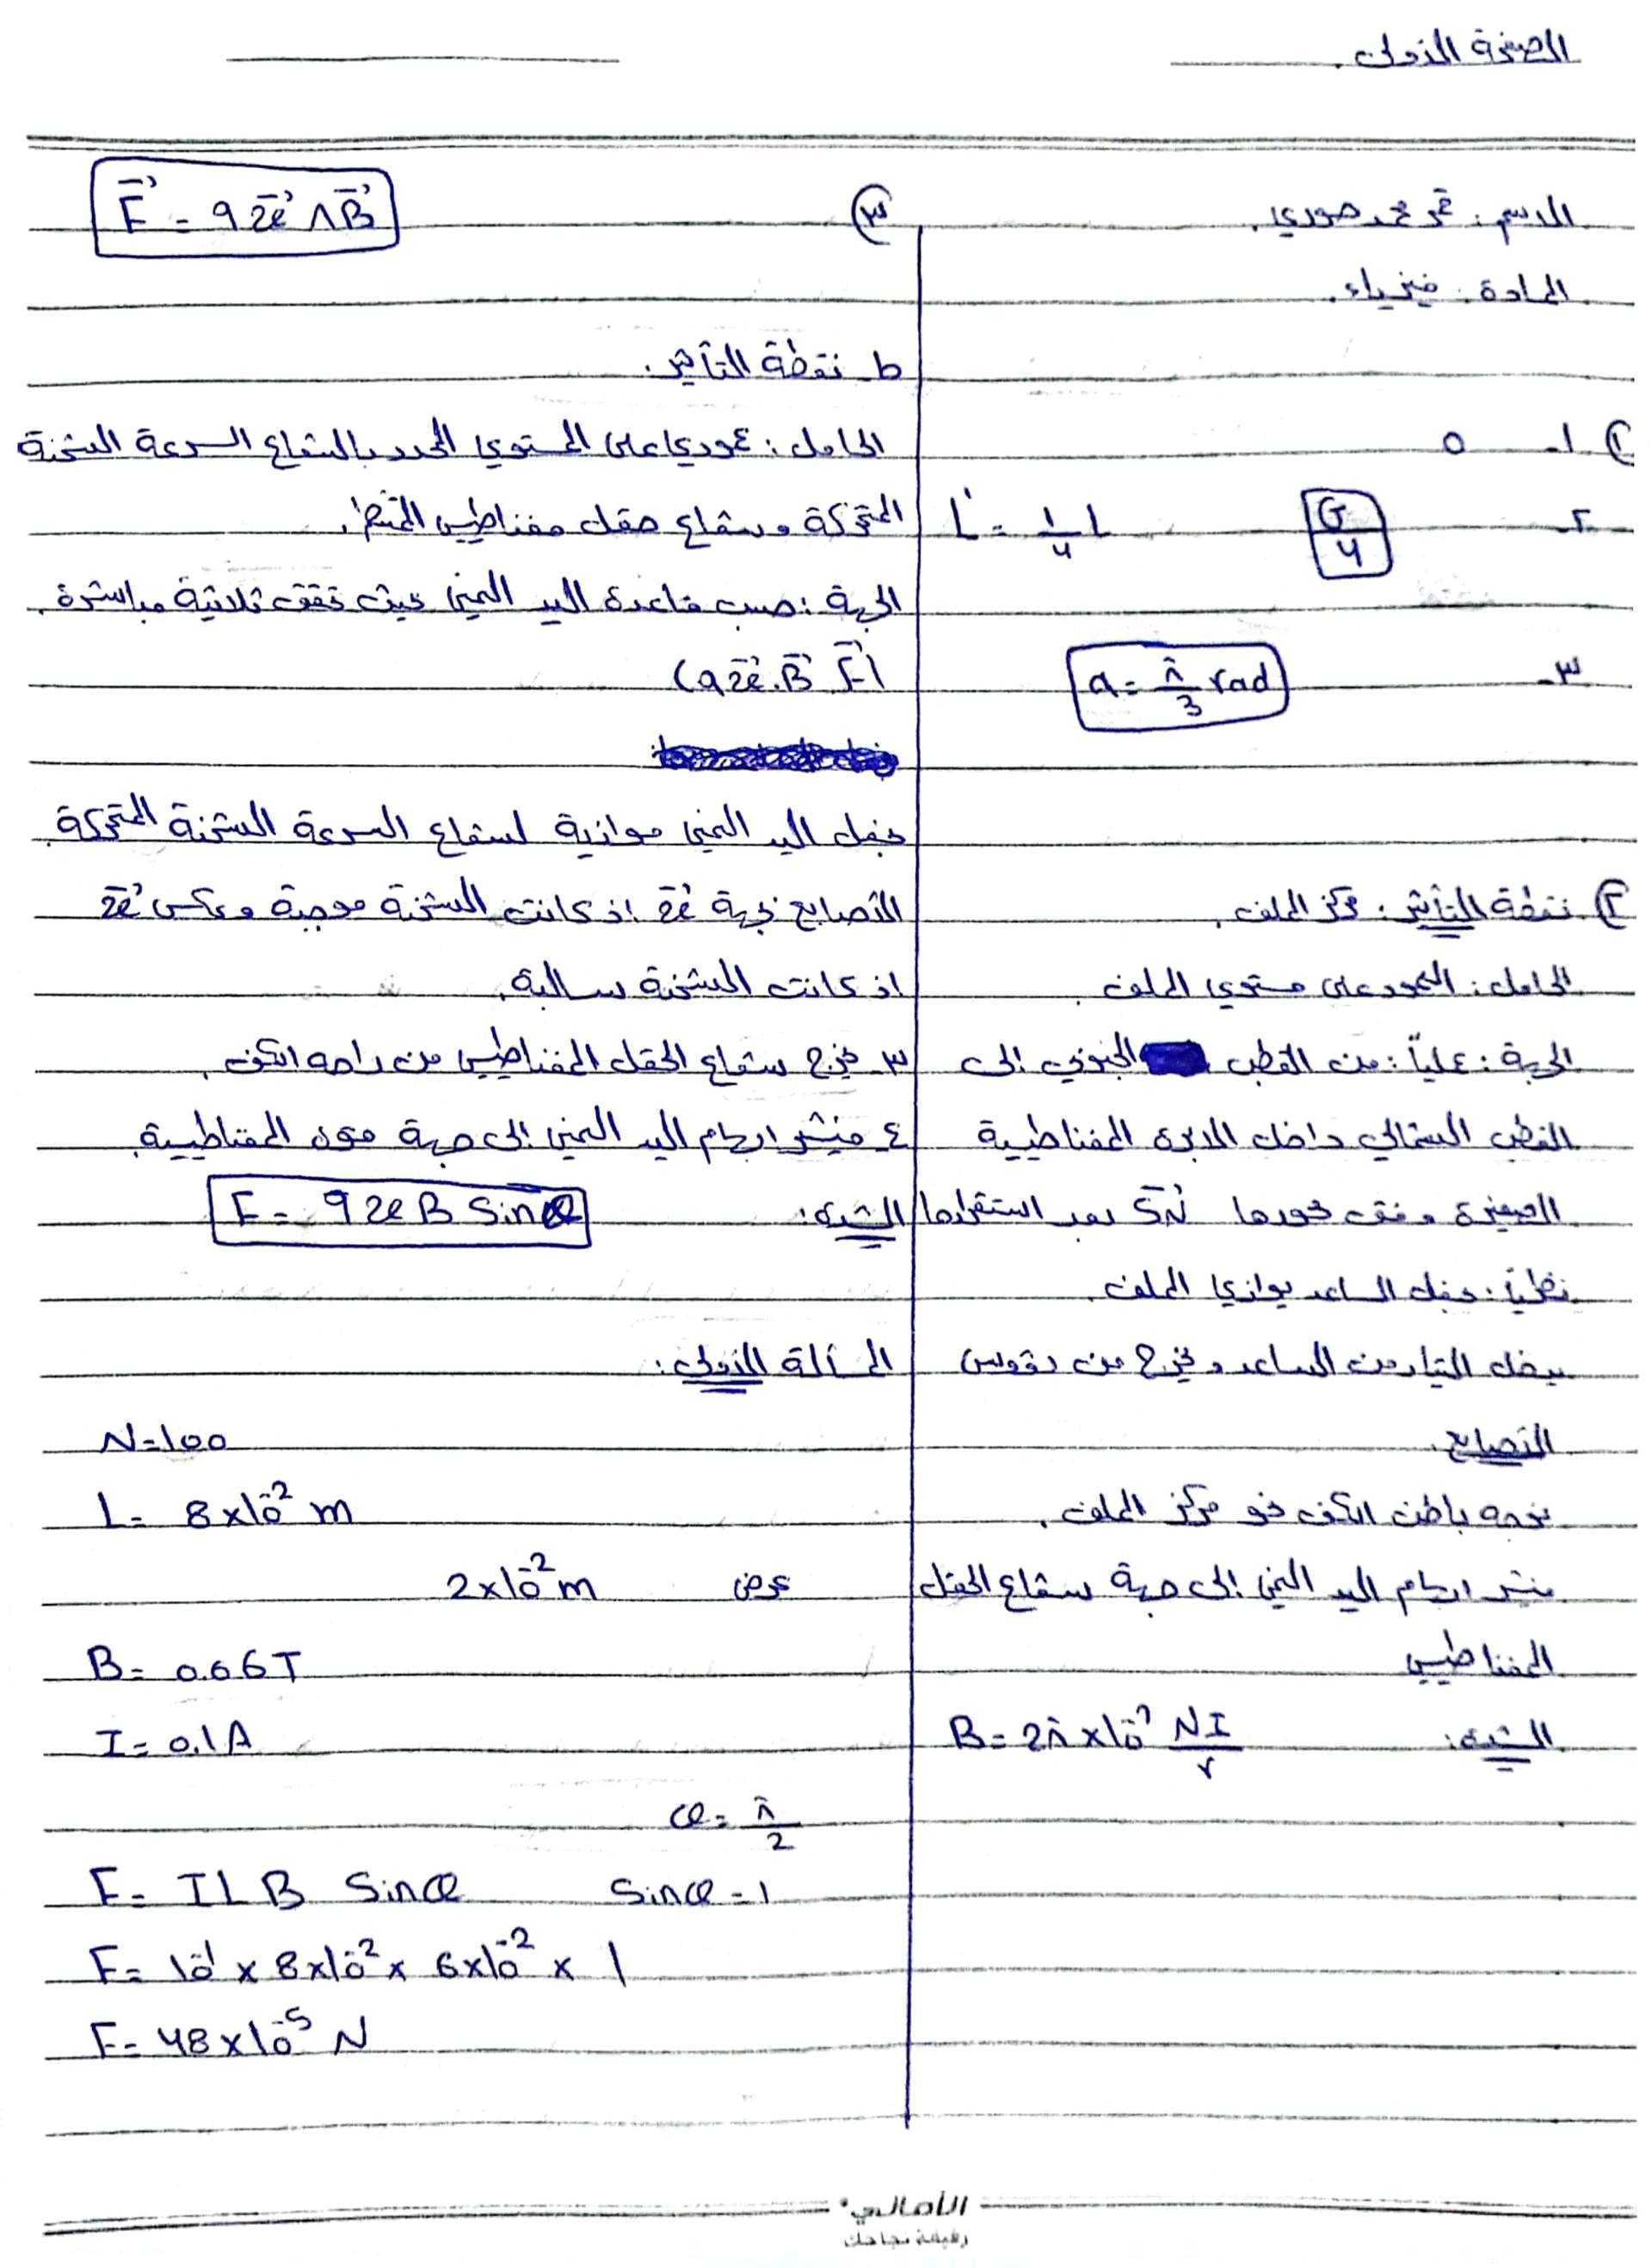 الصفحة الأولى.
الاسم: صوري.
المادة: فيزياء.
١) ١- 0
٢- G/4 L' = 1/4 L
٣- α = π/3 rad
٢) نقطة التأثير: مركز الملف.
الحامل: العمود على مستوي الملف.
الجهة: عملياً: من القطب الجنوبي إلى
القطب الشمالي داخل الابرة المغناطيسية
الصغيرة وفق محورها SN بعد استقرارها
نظرياً: نجعل الساعد يوازي الملف.
يدخل التيار من الساعد ويخرج من رؤوس
الأصابع.
نوجه باطن الكف نحو مركز الملف.
يشير ابهام اليد اليمنى إلى جهة شعاع الحقل
المغناطيسي
الشدة: B = 2π×10⁻⁷ NI/r
٣) F = qv ∧ B
ط نقطة التأثير.
الحامل: عمودي على المستوي المحدد بالشعاع السرعة الشحنة
المتحركة وشعاع حقل مغناطيسي المنتظم.
الجهة: حسب قاعدة اليد اليمنى حيث تحقق ثلاثية مباشرة.
(qv. B F)
نجعل اليد اليمنى موازية لشعاع السرعة الشحنة المتحركة.
الأصابع بجهة v اذ كانت الشحنة موجبة وعكس v
اذ كانت الشحنة سالبة.
٣- يخرج شعاع الحقل المغناطيسي من راحه الكف.
٤- فيشير ابهام اليد اليمنى إلى جهة المغناطيسية.
الشدة: F = qvB Sinα
المسألة الأولى:
N=100
L= 8×10⁻² m
عرض 2×10⁻² m
B= 0.06T
I= 0.1A
α= π/2
F= ILB Sinα Sinα=1
F= 10⁻¹ × 8×10⁻² × 6×10⁻² × 1
F= 48×10⁻⁵ N
الأمالي